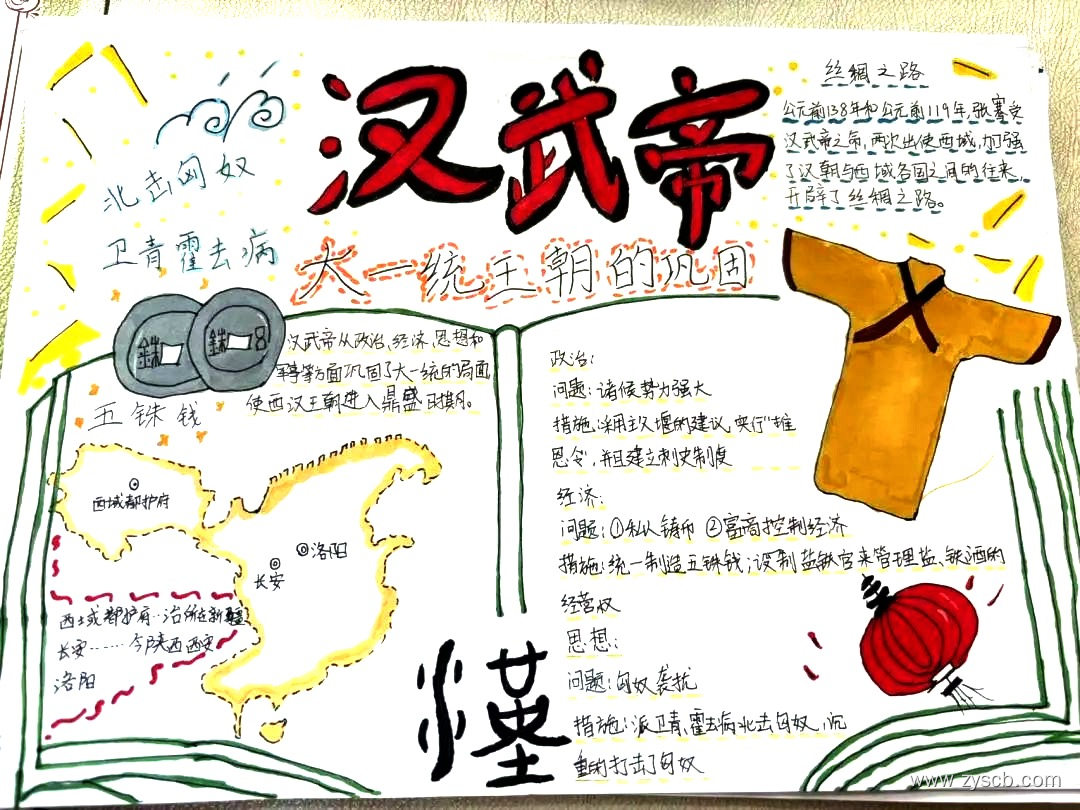 汉武帝
大一统王朝的巩固
北击匈奴
卫青霍去病
丝绸之路
公元前138年和公元前119年,张骞受
汉武帝之命,两次出使西域,加强
了汉朝与西域各国之间的往来,
开辟了丝绸之路。
銖
銖
五铢钱
汉武帝从政治、经济、思想和
军事等方面巩固了大一统的局面
使西汉王朝进入鼎盛时期。
西域都护府
洛阳
长安
西域都护府…治所在新疆
长安……今陕西西安
洛阳
政治:
问题:诸侯势力强大
措施:采用主父偃的建议,实行“推
恩令”,并且建立刺史制度
经济:
问题:①私人铸币 ②富商控制经济
措施:统一制造五铢钱;设制盐铁官来管理盐、铁、酒的
经营权
思想:
问题:匈奴袭扰
措施:派卫青、霍去病北击匈奴,沉
重的打击了匈奴
www.zyscb.com